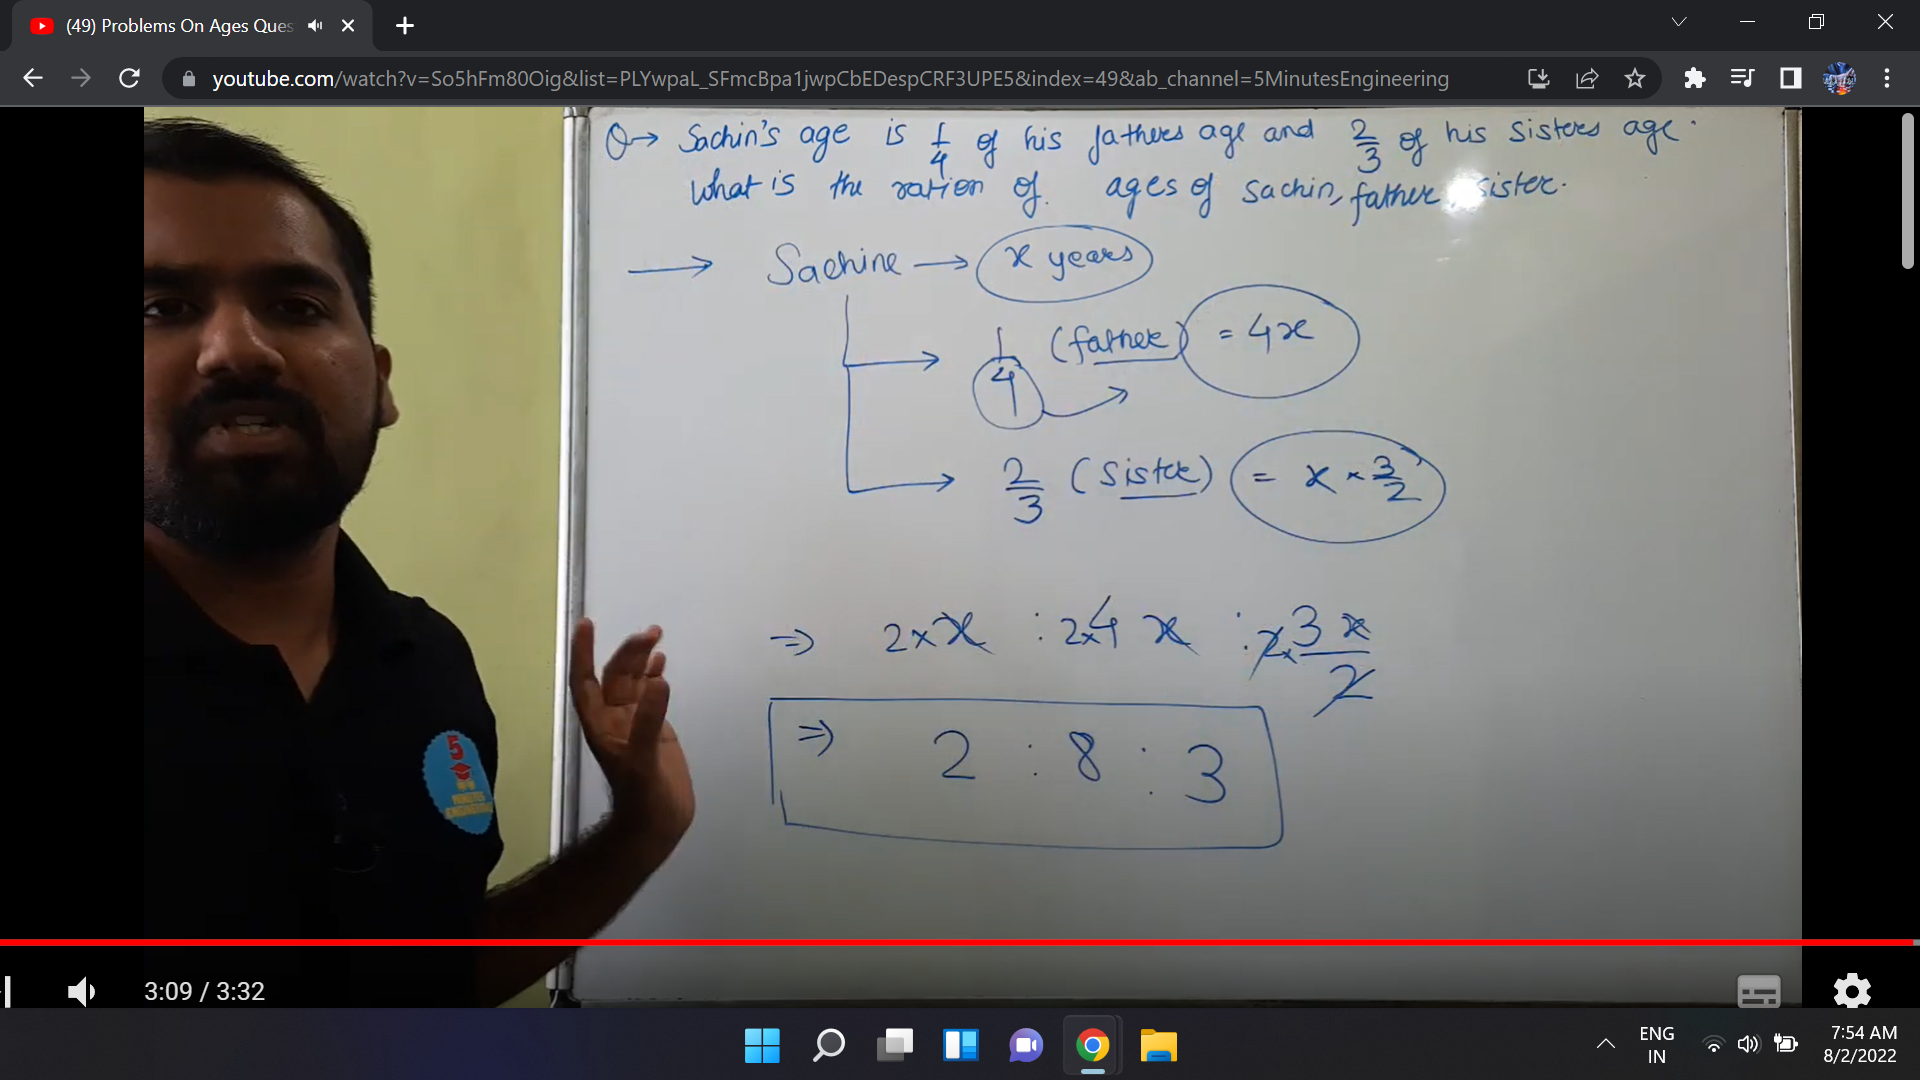 (49) Problems On Ages Ques
youtube.com/watch?v=So5hFm80Oig&list=PLYwpaL_SFmcBpa1jwpCbEDespCRF3UPE5&index=49&ab_channel=5MinutesEngineering
Q→ Sachin's age is 1/4 of his fathers age and 2/3 of his sisters age.
What is the ration of ages of Sachin, father, sister.
→ Sachine → x years
→ 1/4 (father) = 4x
→ 2/3 (sister) = x × 3/2
⇒ 2×x : 2×4x : 2×3x/2
⇒ 2 : 8 : 3
5
MINUTES
ENGINEERING
3:09 / 3:32
ENG
IN
7:54 AM
8/2/2022